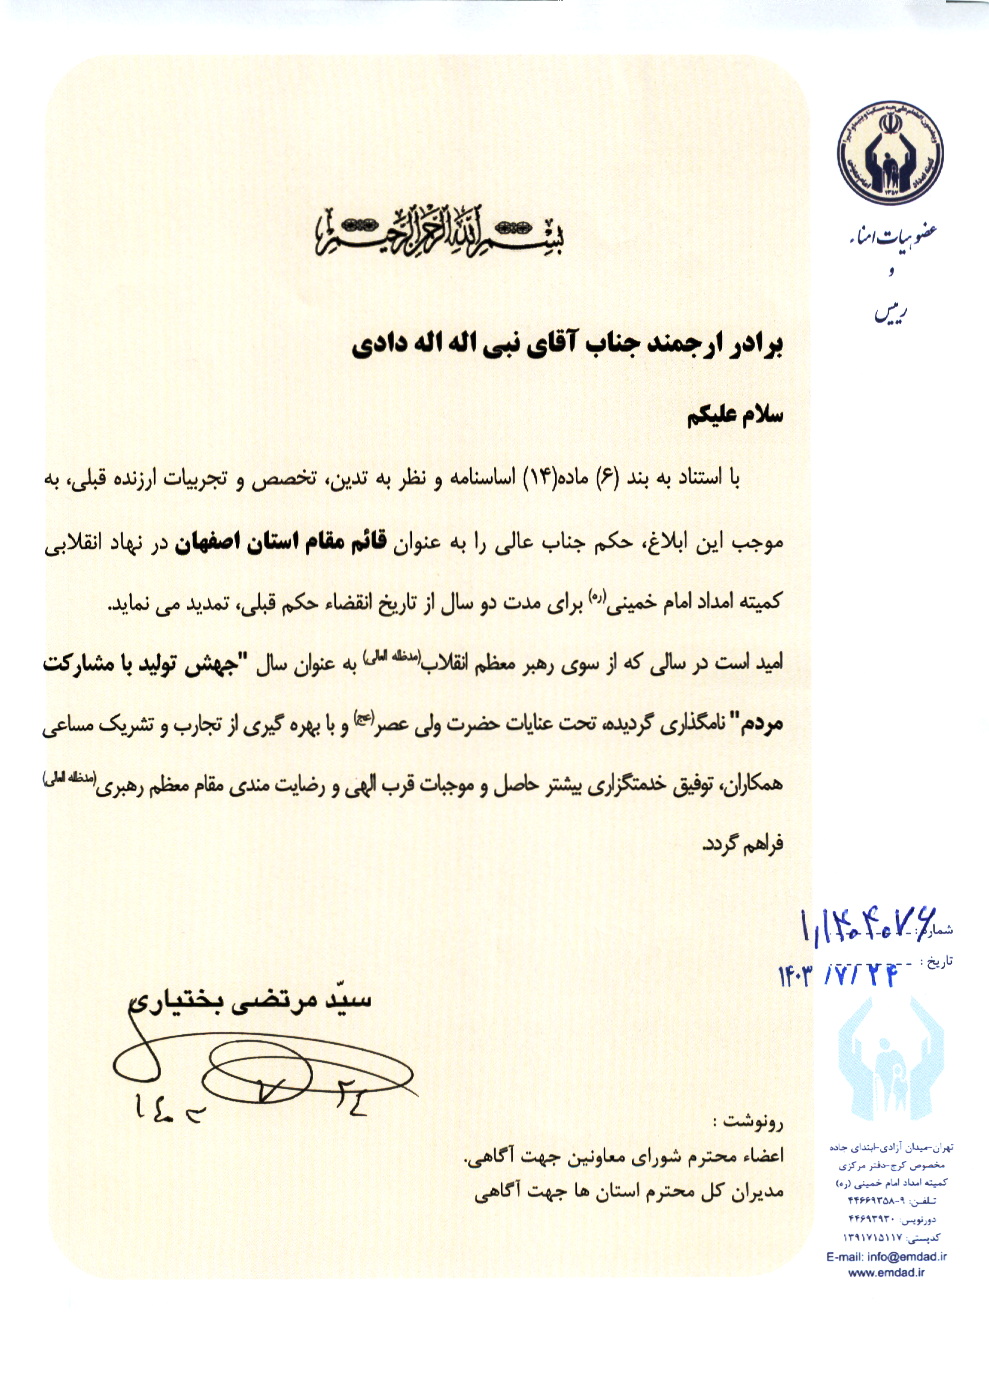 کمیته امداد امام خمینی
۱۳۵۷
عضو هیات امناء
و
رییس
بسم الله الرحمن الرحیم
برادر ارجمند جناب آقای نبی اله اله دادی
سلام علیکم
با استناد به بند (۶) ماده(۱۴) اساسنامه و نظر به تدین، تخصص و تجربیات ارزنده قبلی، به
موجب این ابلاغ، حکم جناب عالی را به عنوان قائم مقام استان اصفهان در نهاد انقلابی
کمیته امداد امام خمینی(ره) برای مدت دو سال از تاریخ انقضاء حکم قبلی، تمدید می نماید.
امید است در سالی که از سوی رهبر معظم انقلاب(مدظله العالی) به عنوان سال "جهش تولید با مشارکت
مردم" نامگذاری گردیده، تحت عنایات حضرت ولی عصر(عج) و با بهره گیری از تجارب و تشریک مساعی
همکاران، توفیق خدمتگزاری بیشتر حاصل و موجبات قرب الهی و رضایت مندی مقام معظم رهبری(مدظله العالی)
فراهم گردد.
شماره :
تاریخ : ۱۴۰۳/۷/۲۴
سیّد مرتضی بختیاری
۱۴۰۳ ۷ ۲۴
رونوشت :
اعضاء محترم شورای معاونین جهت آگاهی.
مدیران کل محترم استان ها جهت آگاهی
تهران-میدان آزادی-ابتدای جاده
مخصوص کرج-دفتر مرکزی
کمیته امداد امام خمینی (ره)
تلفن: ۹-۴۴۶۶۹۳۵۸
دورنویس: ۴۴۶۹۳۹۳۰
کدپستی: ۱۳۹۱۷۱۵۱۱۷
E-mail: info@emdad.ir
www.emdad.ir